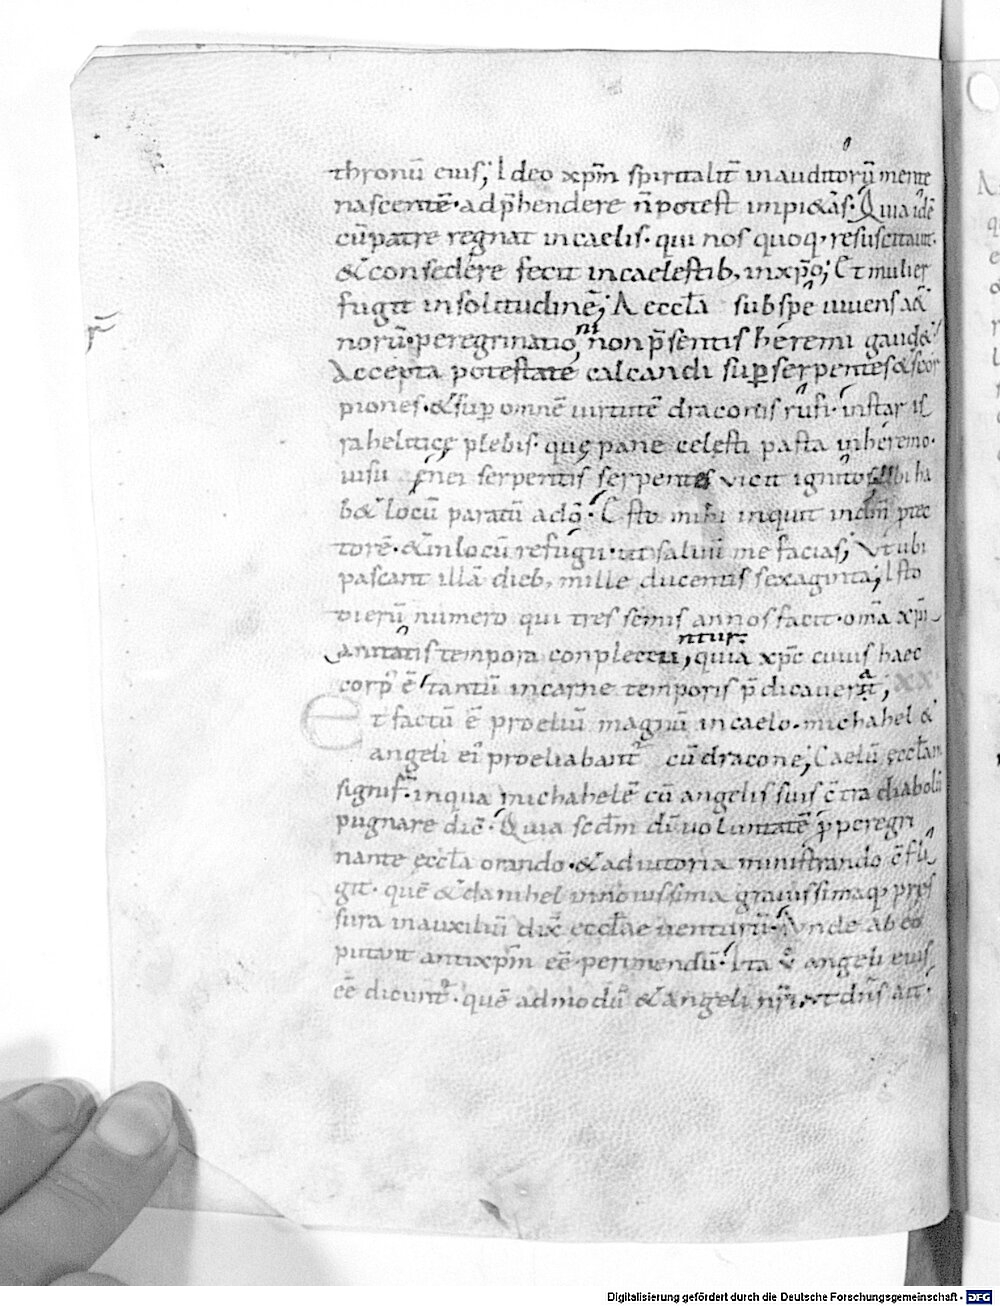 thronū eius; Ideo xp̄m spiritalit̄ in auditorū mente
nascentē· adp̄hendere n̄ potest impi&as· Quia idē
cū patre regnat in caelis· qui nos quoq; resuscitauit·
& consedere fecit in caelestib; in xp̄o; Et mulier
fugit in solitudinē; Aeccl̄a sub spe uiuens &
norū· peregrinatio, ni non p̄sentis heremi gaud&
Accepta potestate calcandi sup serpentes & scor
piones· & sup omnē uirtutē draconis rufi· instar is
raheliticę plebis· quę pane celesti pasta in heremo·
uisu ęnei serpentis serpentes vicit ignitos Ubi ha
b& locū paratū a dō· Esto mihi inquit in dm̄ ptec
torē· & in locū refugii· ut saluū me facias; Vt ubi
pascant illā dieb; mille ducentis sexaginta; Isto
dierū numero qui tres semis annos facit· om̄a xp̄i
anitatis tempora conplectu,ntur quia xp̄c cuius haec
corp' ē tantū in carne temporis p̄dicauerat; XX
Et factū ē proeliū magnū in caelo· michahel &
angeli ei' proeliabant' cū dracone; Caelū ęccl̄am
signif· in qua michahelē cū angelis suis c̄tra diabolū
pugnare dic̄· Quia scd̄m dī uoluntatē p peregri
nante eccl̄a orando· & adiutoria ministrando c̄fli
git· quē & danihel in nouissima grauissimaq; pres
sura in auxiliū dix̄ eccl̄ae uenturū· Vnde ab eo
putant antixp̄m eē perimendū· Ita & angeli eius
eē dicunt'· quē admodū & angeli nr̄i ut dn̄s ait·